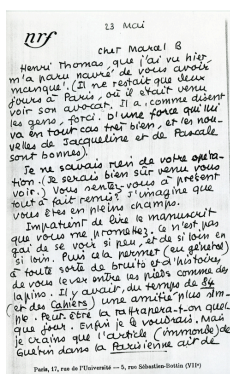 nrf
23 Mai
cher Marcel B
Henri Thomas, que j'ai vu hier,
m'a paru navré de vous avoir
manqué. (Il ne restait que deux
jours à Paris, où il était venu
voir son avocat. Il a, comme disent
les gens, forci. D'une force qui lui
va en tout cas très bien, et les nou-
velles de Jacqueline et de Pascale
sont bonnes).
Je ne savais rien de votre opéra-
tion. (Je serais bien sûr venu vous
voir.) Vous sentez-vous à présent
tout à fait remis? J'imagine que
vous êtes en pleins champs.
Impatient de lire le manuscrit
que vous me promettez. Ce n'est pas
gai de se voir si peu, et de si loin en
si loin. Puis cela permet (en général)
à toute sorte de bruits et d'histoires
de vous lever entre les pieds comme des
lapins. Il y avait, du temps de 84
(et des Cahiers) une amitié plus sim-
ple. Peut-être la rattrapera-t-on quel-
que jour. Enfin je le voudrais. Mais
je crains que l'article (immonde) de
Guérin dans la Parisienne ait de
Paris, 17, rue de l'Université — 5, rue Sébastien-Bottin (VIIe)